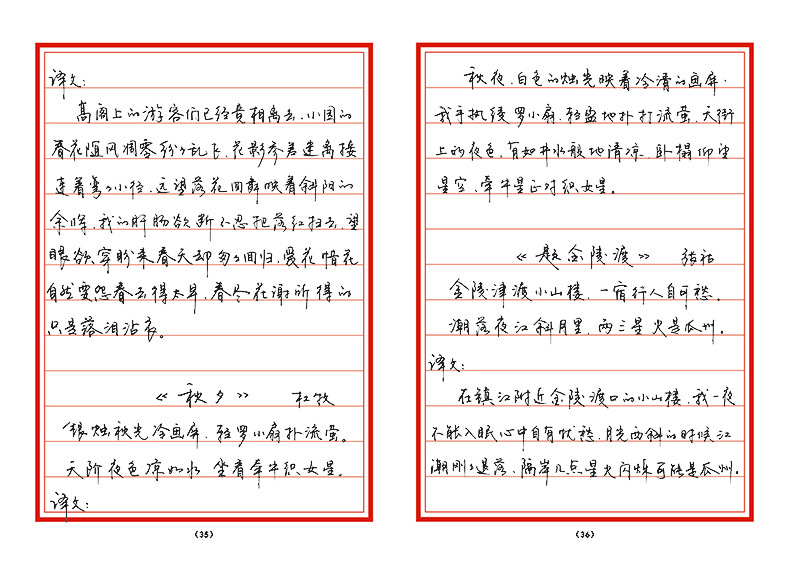 译文：
高阁上的游客们已经竟相离去，小园的
春花随风凋零纷纷乱飞，花影参差迷离接
连着弯弯小径，远望落花回舞映着斜阳的
余晖，我的肝肠欲断不忍把落红扫去，望
眼欲穿盼来春天却匆匆回归，爱花惜花
自然要怨春去得太早，春尽花谢所得的
只是落泪沾衣。
《秋夕》 杜牧
银烛秋光冷画屏，轻罗小扇扑流萤。
天阶夜色凉如水 坐看牵牛织女星。
译文：
(35)
秋夜，白色的烛光映着冷清的画屏，
我手执绫罗小扇，轻盈地扑打流萤，天街
上的夜色，有如井水般地清凉，卧榻仰望
星空，牵牛星正对织女星。
《题金陵渡》 张祜
金陵津渡小山楼，一宿行人自可愁。
潮落夜江斜月里，两三星火是瓜州。
译文：
在镇江附近金陵渡口的小山楼，我一夜
不能入眠心中自有忧愁，月光西斜的时候江
潮刚刚退落，隔岸几点星火闪烁可能是瓜州。
(36)